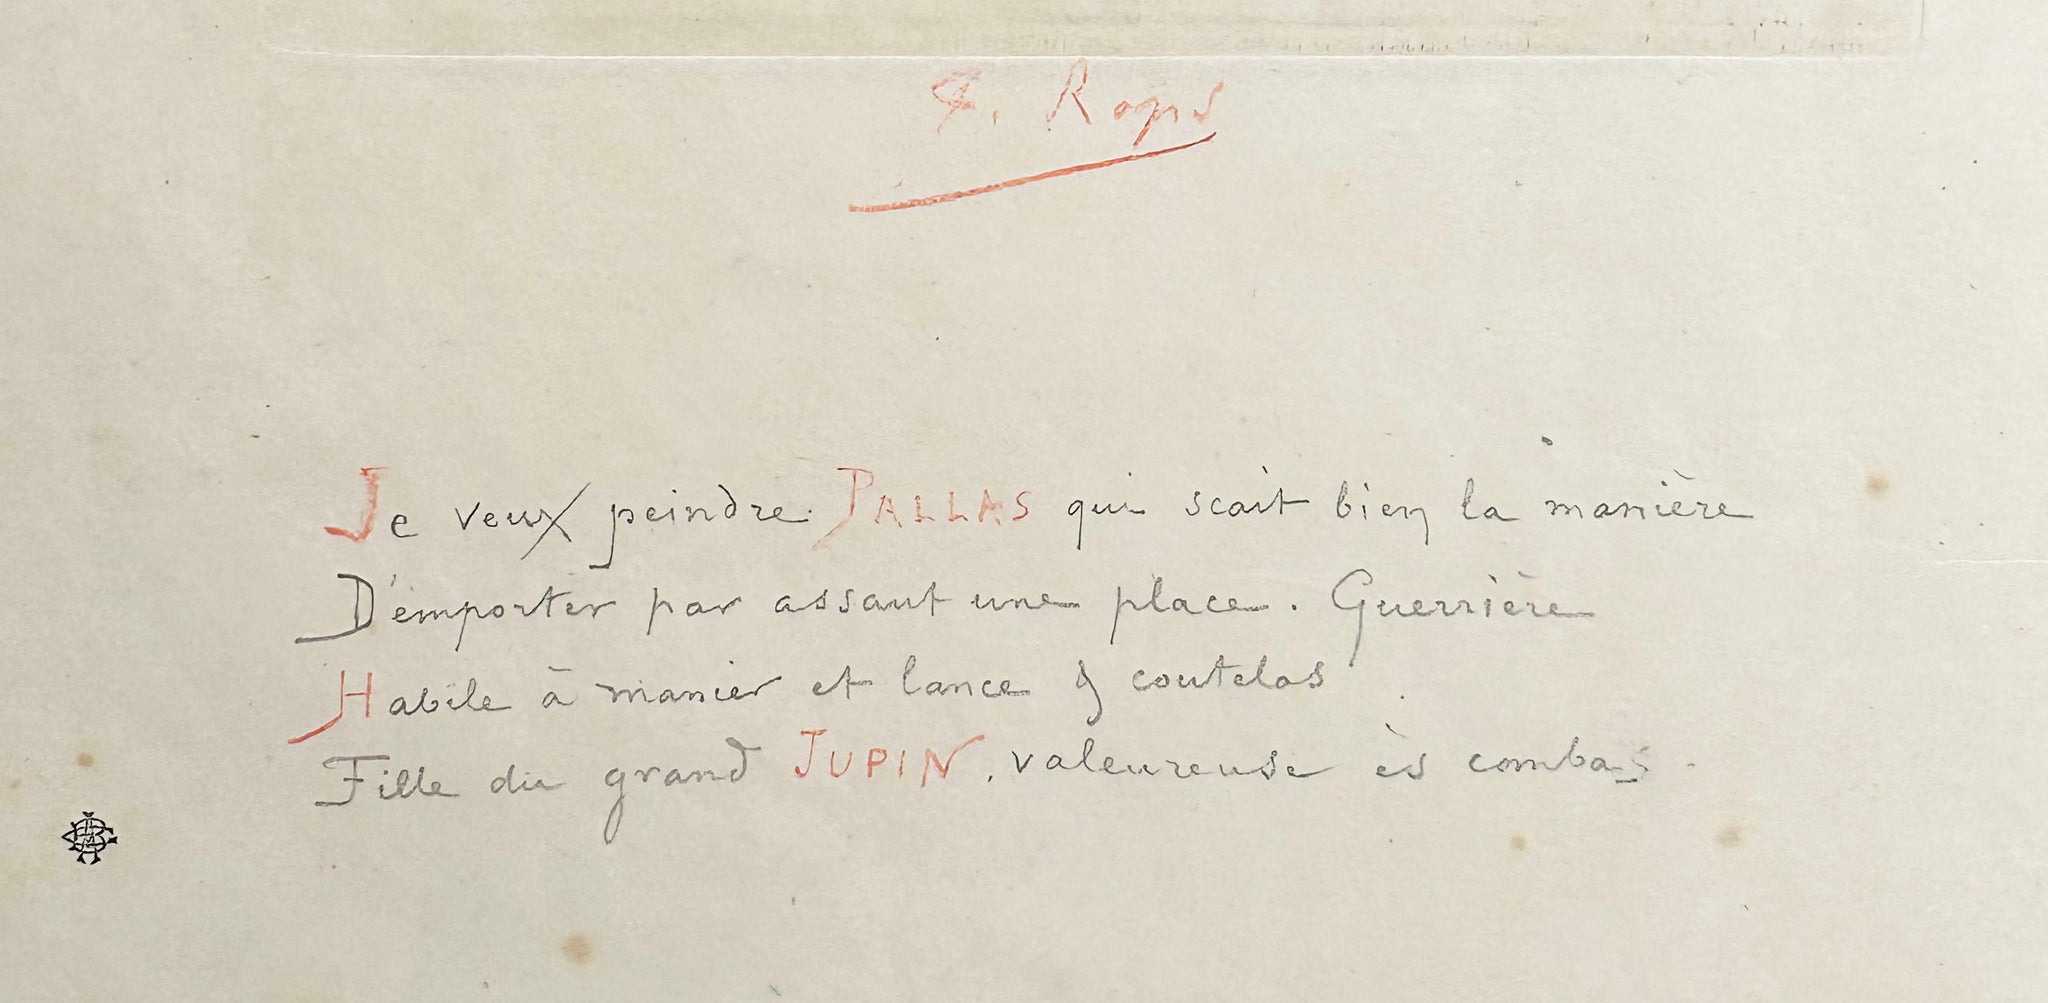 F. Rops
Je veux peindre PALLAS qui scait bien la manière
D'emporter par assaut une place. Guerrière
Habile à manier et lance & coutelas
Fille du grand JUPIN, valeureuse ès combas.